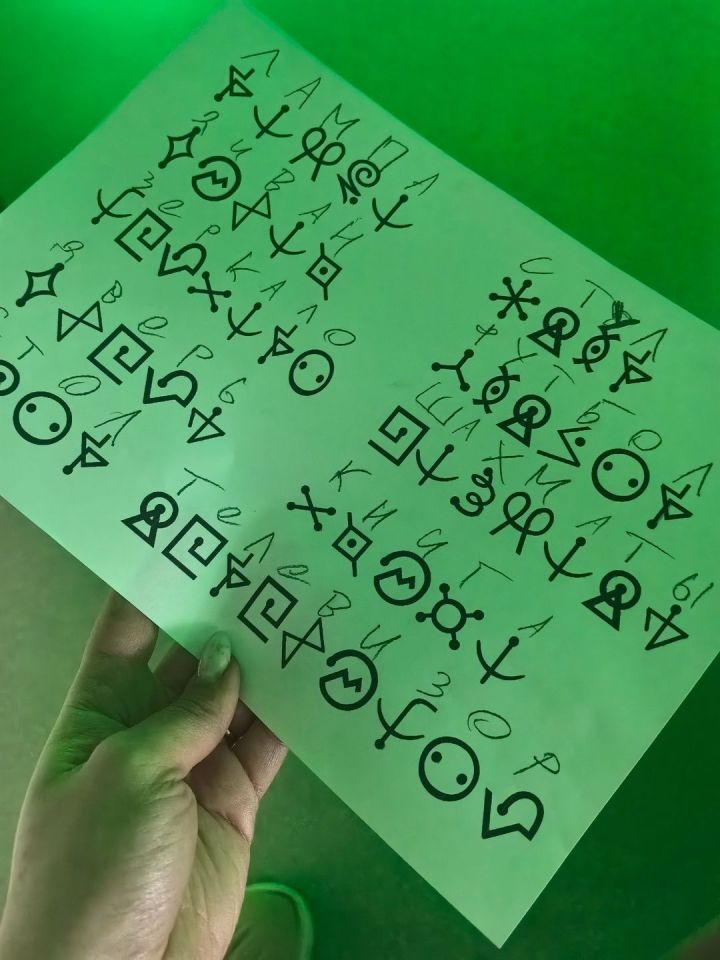 ЛАМПА
дИВАН
ЗеРКАЛО
дВеРЬ
СТОЛ
СТУЛ
фУТБОЛ
ШАХМАТЫ
КНИГА
ТеЛеВИЗОР